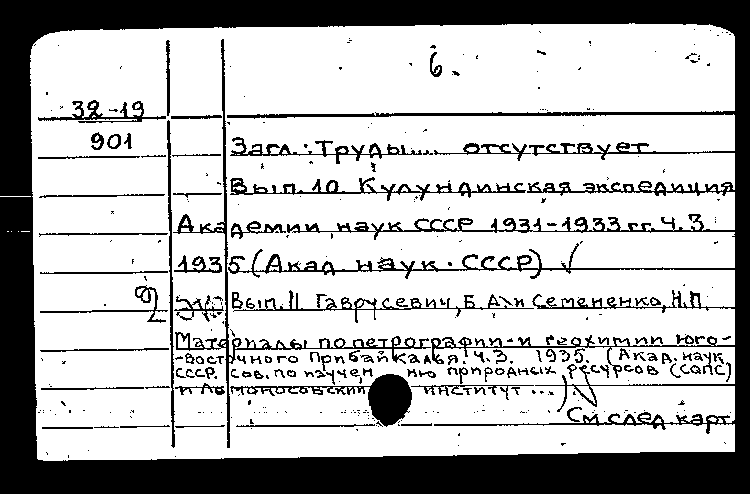 6.
32-19
901
Загл.: Труды.... отсутствует.
Вып. 10. Кулундинская экспедиция
Академии наук СССР 1931-1933 гг. Ч. 3.
1935 (Акад. наук. СССР) √
Вып. 11 Гаврусевич, Б. А. и Семененко, Н.П.
Материалы по петрографии и геохимии юго-
-восточного Прибайкалья. Ч.3. 1935. (Акад. наук
СССР. Сов. по изучен нию природных ресурсов (СОПС)
и Ломоносовский институт ...)
См. след. карт.